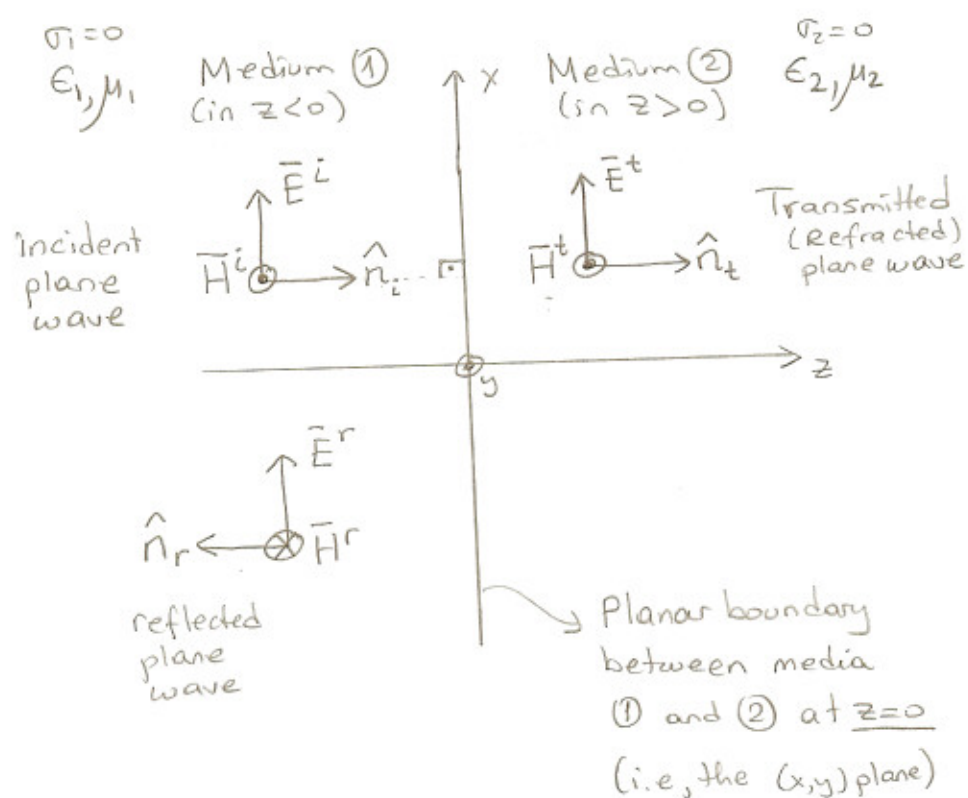 σ₁=0
ϵ₁,μ₁
Medium ①
(in z<0)
x
Medium ②
(in z>0)
σ₂=0
ϵ₂,μ₂
Ēⁱ
H̄ⁱ
n̂ᵢ
incident
plane
wave
Ēᵗ
H̄ᵗ
n̂ₜ
Transmitted
(Refracted)
plane wave
y
z
Ēʳ
n̂ᵣ
H̄ʳ
reflected
plane
wave
Planar boundary
between media
① and ② at z=0
(i.e, the (x,y) plane)